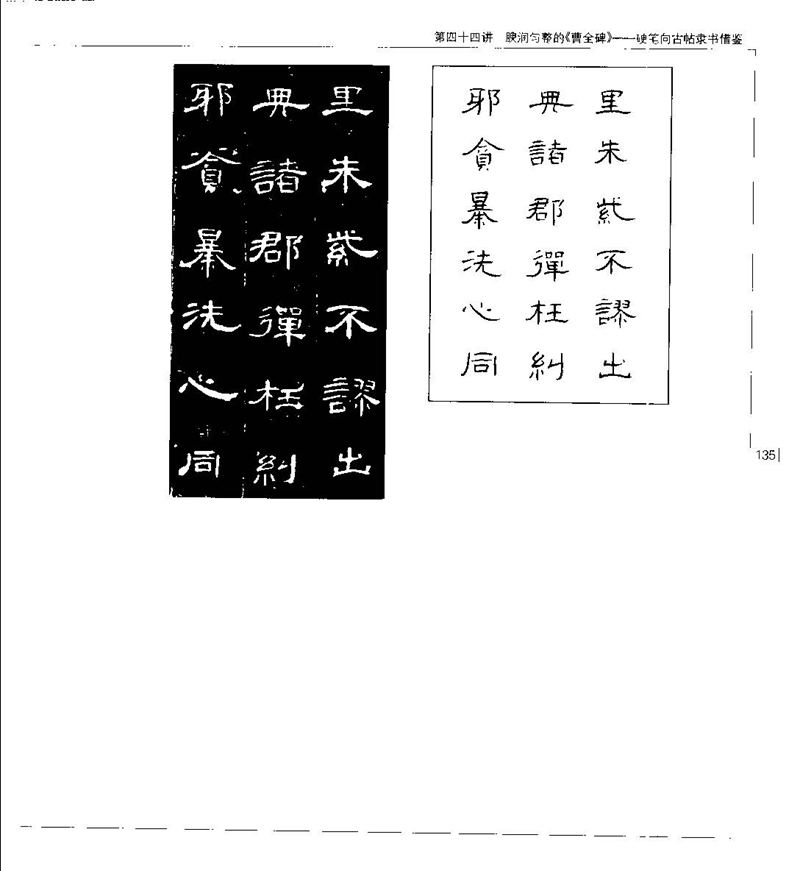 第四十四讲 腴润匀整的《曹全碑》——硬笔向古帖隶书借鉴
里朱紫不謬出
典諸郡彈枉糾
邪貪暴洗心同
里朱紫不謬出
典諸郡彈枉糾
邪貪暴洗心同
135